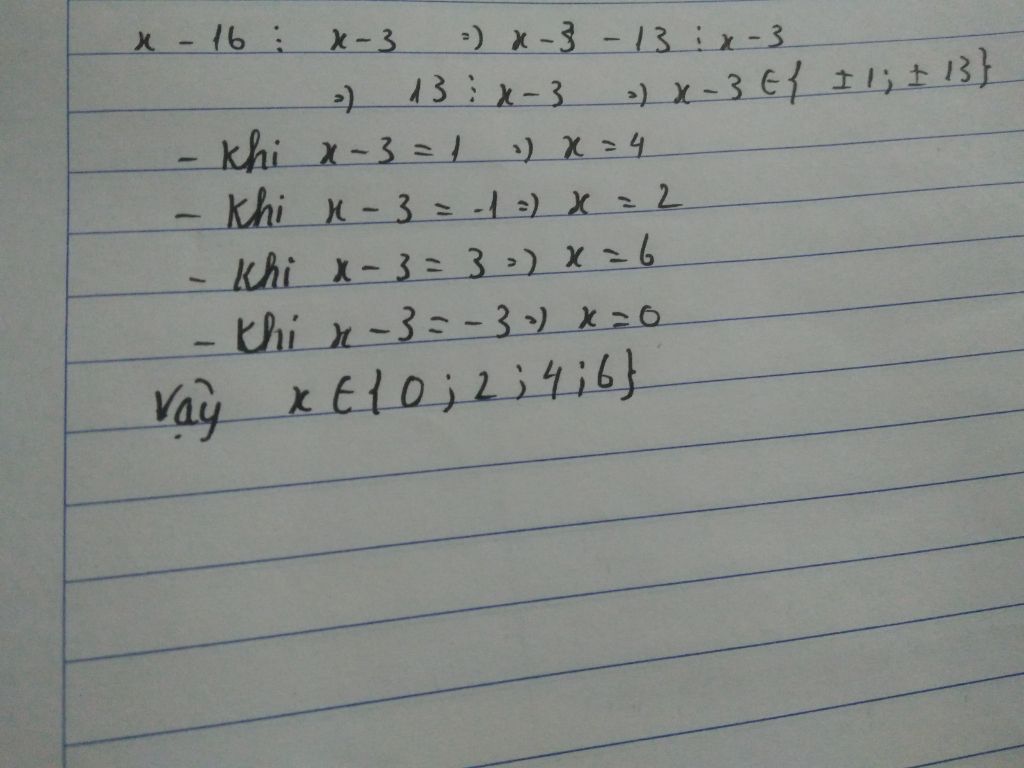 x - 16 ⋮ x - 3 => x - 3 - 13 ⋮ x - 3
=> 13 ⋮ x - 3 => x - 3 ∈ { ±1; ± 13}
- Khi x - 3 = 1 => x = 4
- Khi x - 3 = -1 => x = 2
- Khi x - 3 = 3 => x = 6
- Khi x - 3 = - 3 => x = 0
Vậy x ∈ { 0 ; 2 ; 4 ; 6}